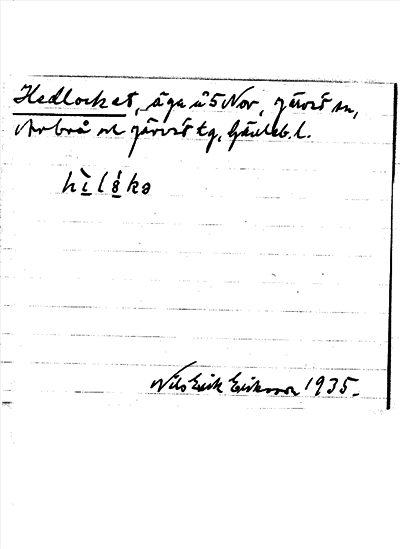 Hedlocket, äga å 5 Nor, Järvsö sn,
Arbrå o Järvsö tg, Gävleb. l.
hìlɵ́kə
Nils Erik Eriksson 1935.